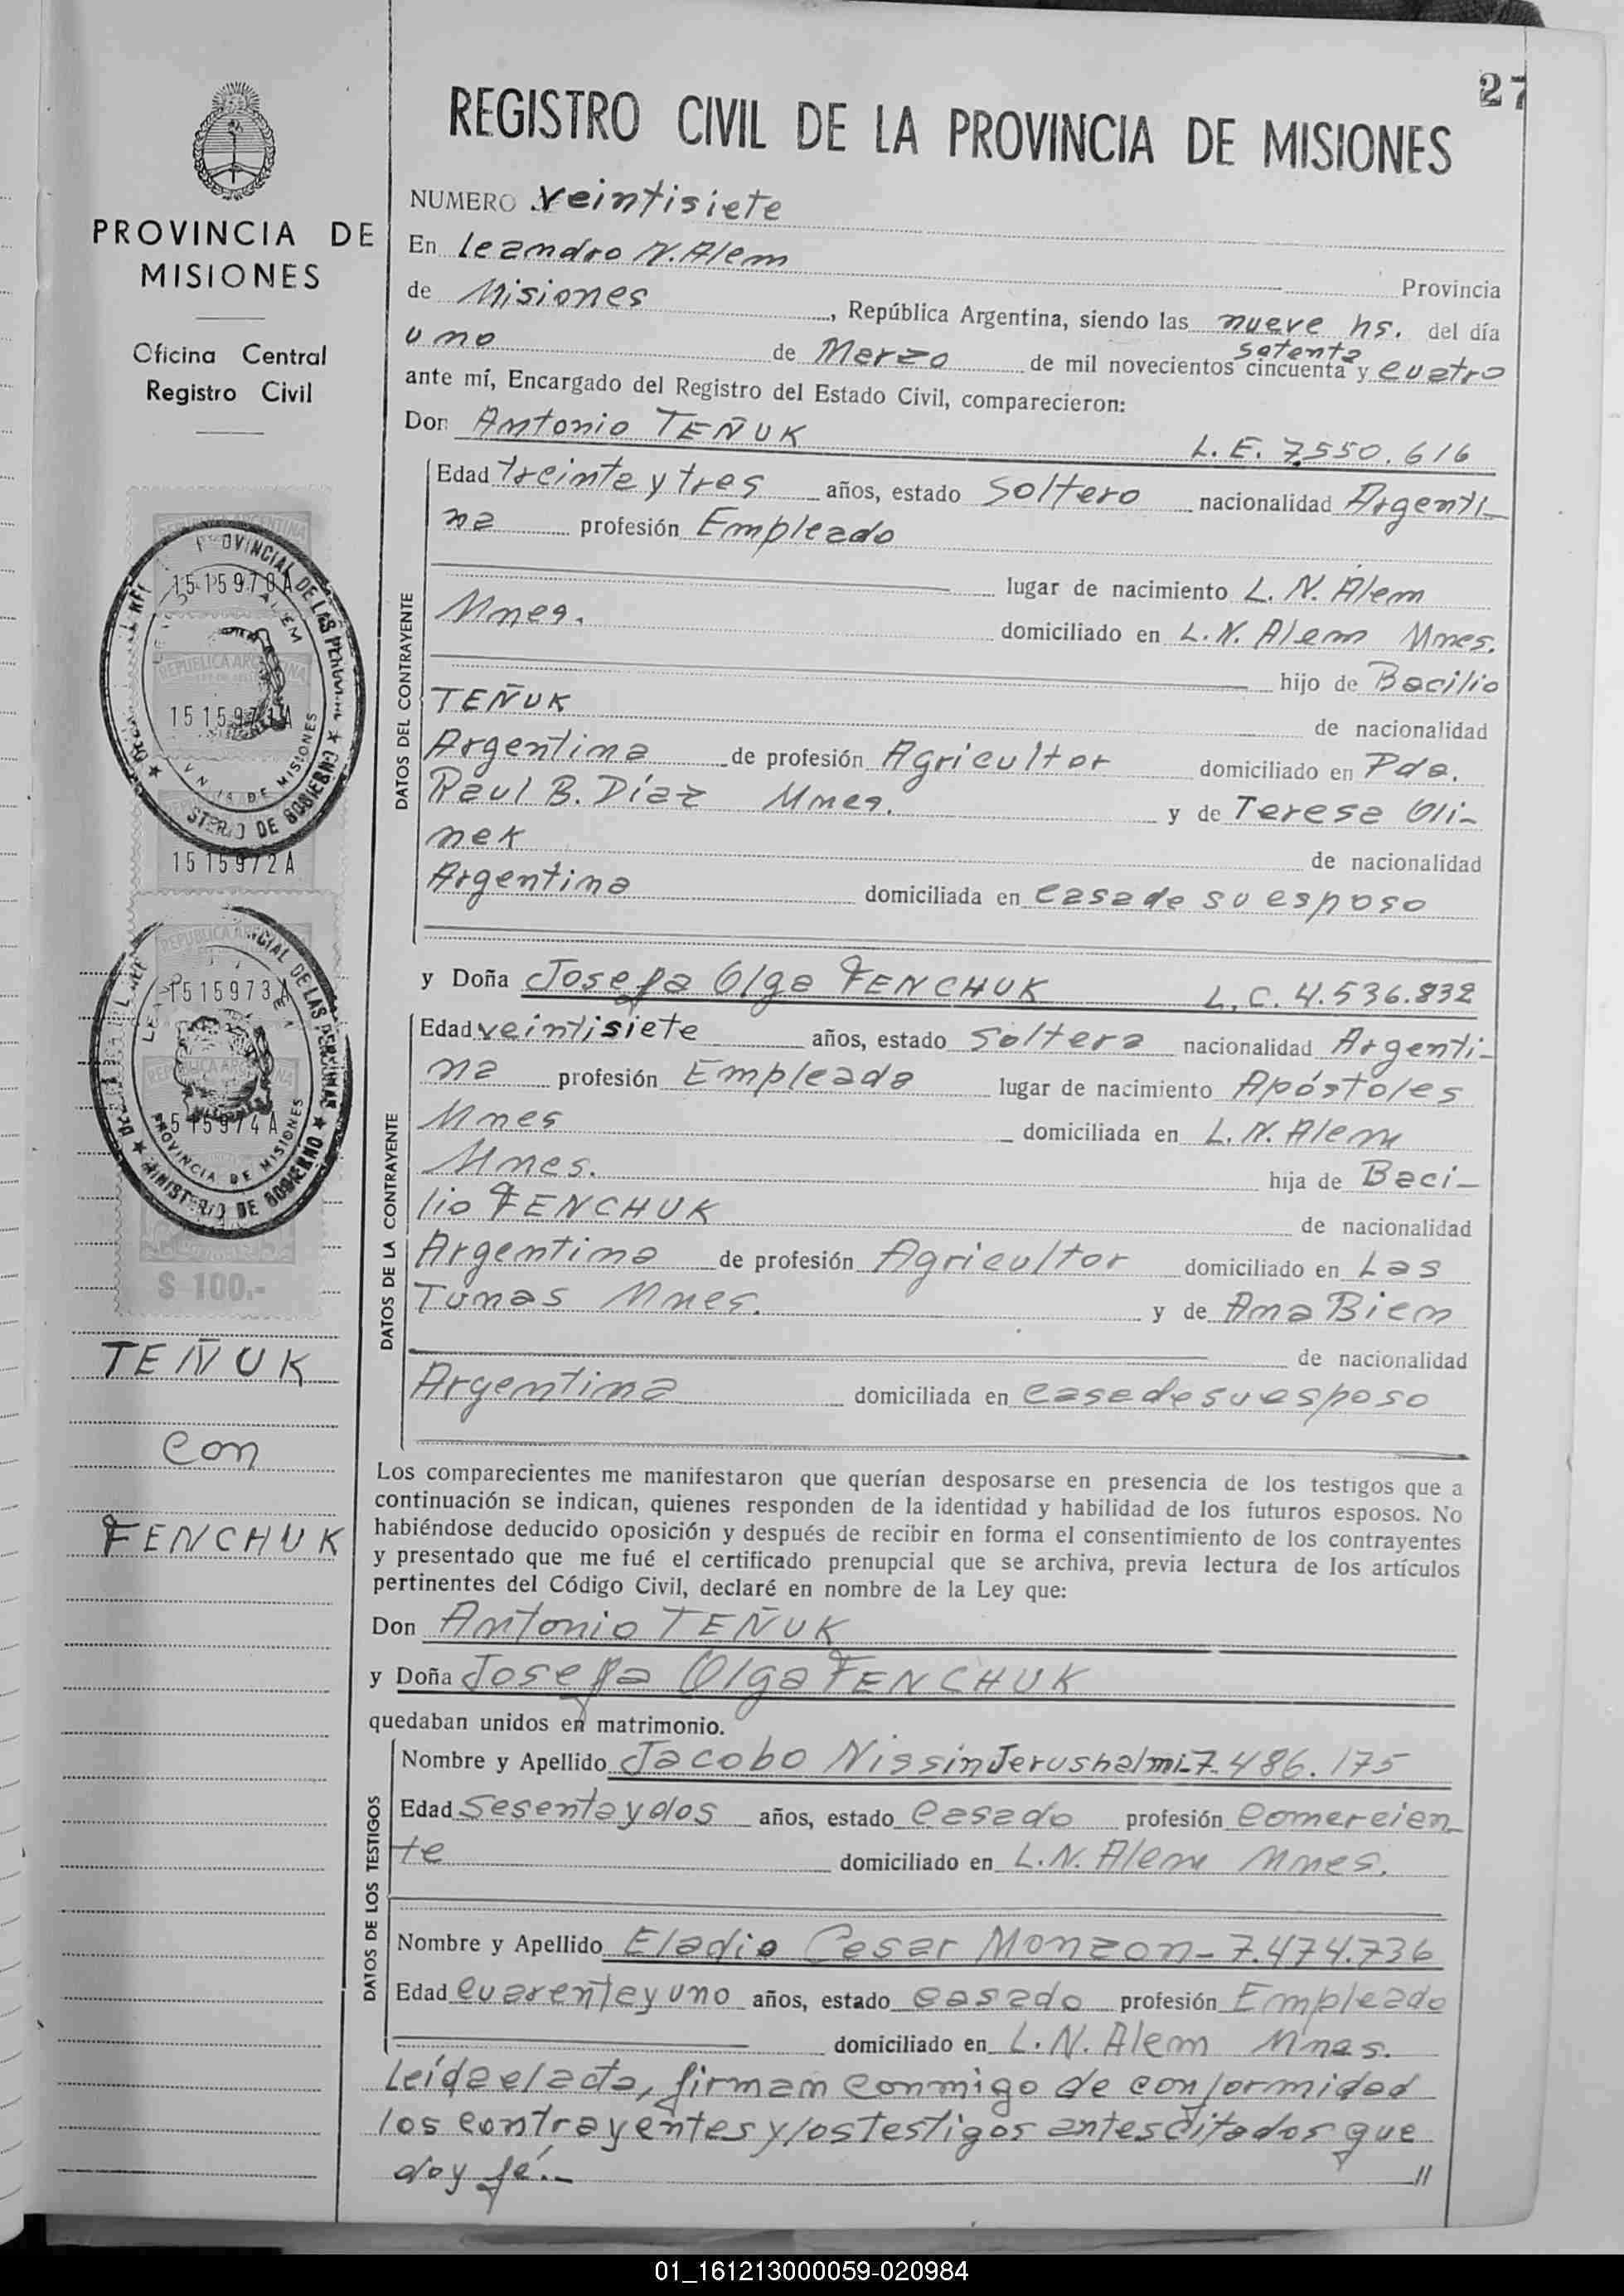 27
REGISTRO CIVIL DE LA PROVINCIA DE MISIONES
PROVINCIA DE
MISIONES
Oficina Central
Registro Civil
NUMERO veintisiete
En Leandro N. Alem Provincia
de Misiones, República Argentina, siendo las nueve hs. del día
uno de Marzo de mil novecientos cincuenta setenta y cuatro
ante mí, Encargado del Registro del Estado Civil, comparecieron:
Don Antonio TEÑUK L.E. 7.550.616
DATOS DEL CONTRAYENTE
Edad treinta y tres años, estado Soltero nacionalidad Argenti-
na profesión Empleado
lugar de nacimiento L. N. Alem
Mnes. domiciliado en L. N. Alem Mnes.
hijo de Bacilio
TEÑUK de nacionalidad
Argentina de profesión Agricultor domiciliado en Pda.
Raul B. Díaz Mnes. y de Teresa Oli-
nek de nacionalidad
Argentina domiciliada en casa de su esposo
y Doña Josefa Olga FENCHUK L.C. 4.536.832
DATOS DE LA CONTRAYENTE
Edad veintisiete años, estado Soltera nacionalidad Argenti-
na profesión Empleada lugar de nacimiento Apóstoles
Mnes domiciliada en L. N. Alem
Mnes. hija de Baci-
lio FENCHUK de nacionalidad
Argentina de profesión Agricultor domiciliado en Las
Tunas Mnes. y de Ana Biem
de nacionalidad
Argentina domiciliada en casa de su esposo
Los comparecientes me manifestaron que querían desposarse en presencia de los testigos que a
continuación se indican, quienes responden de la identidad y habilidad de los futuros esposos. No
habiéndose deducido oposición y después de recibir en forma el consentimiento de los contrayentes
y presentado que me fué el certificado prenupcial que se archiva, previa lectura de los artículos
pertinentes del Código Civil, declaré en nombre de la Ley que:
Don Antonio TEÑUK
y Doña Josefa Olga FENCHUK
quedaban unidos en matrimonio.
DATOS DE LOS TESTIGOS
Nombre y Apellido Jacobo Nissin Jerushalmi-7.486.175
Edad Sesenta y dos años, estado Casado profesión Comercian-
te domiciliado en L.N. Alem Mnes.
Nombre y Apellido Eladio Cesar Monzon-7.474.736
Edad cuarenta y uno años, estado casado profesión Empleado
domiciliado en L. N. Alem Mnes.
Leída el acta, firman conmigo de conformidad
los contrayentes y los testigos antes citados que
doy fé.- //
1515970A
REPUBLICA ARGENTINA
1515971A
1515972A
1515973A
1515974A
PROVINCIA DE MISIONES
MINISTERIO DE GOBIERNO
$ 100.-
TEÑUK
con
FENCHUK
01_161213000059-020984